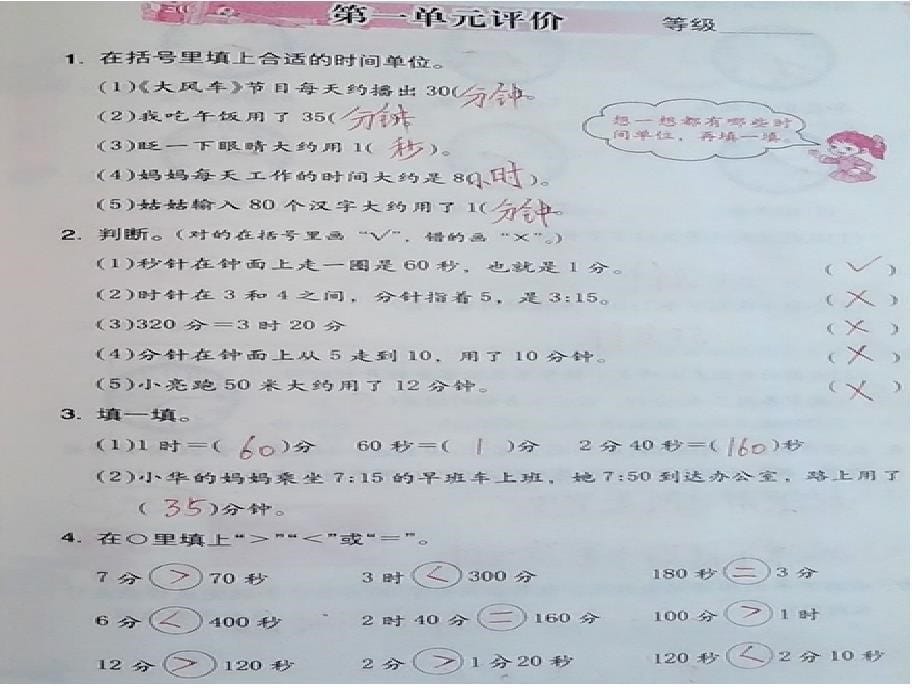 第一单元评价 等级
1. 在括号里填上合适的时间单位。
(1)《大风车》节目每天约播出 30(分钟。
(2)我吃午饭用了 35(分钟
(3)眨一下眼睛大约用 1( 秒 )。
(4)妈妈每天工作的时间大约是 8(小时)。
(5)姑姑输入 80 个汉字大约用了 1(分钟。
想一想都有哪些时
间单位,再填一填。
2. 判断。(对的在括号里画“√”,错的画“×”。)
(1)秒针在钟面上走一圈是 60 秒,也就是 1 分。 ( √ )
(2)时针在 3 和 4 之间,分针指着 5,是 3:15。 ( × )
(3)320 分=3 时 20 分 ( × )
(4)分针在钟面上从 5 走到 10,用了 10 分钟。 ( × )
(5)小亮跑 50 米大约用了 12 分钟。 ( × )
3. 填一填。
(1)1 时=( 60 )分 60 秒=( 1 )分 2 分 40 秒=(160)秒
(2)小华的妈妈乘坐 7:15 的早班车上班,她 7:50 到达办公室,路上用了
( 35 )分钟。
4. 在○里填上“>”“<”或“=”。
7 分 > 70 秒 3 时 < 300 分 180 秒 = 3 分
6 分 < 400 秒 2 时 40 分 = 160 分 100 分 > 1 时
12 分 > 120 秒 2 分 > 1 分 20 秒 120 秒 < 2 分 10 秒